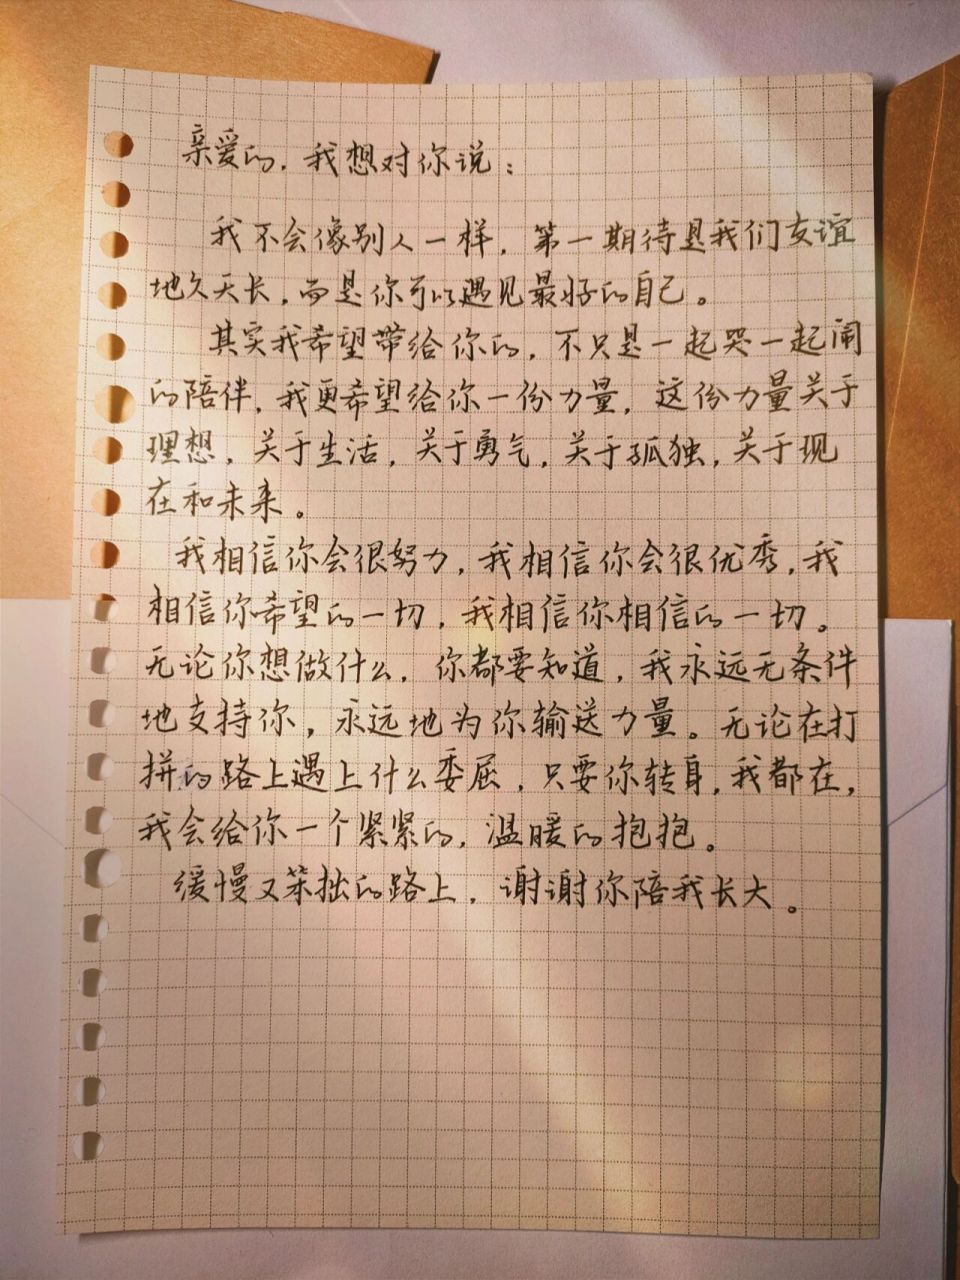 亲爱的，我想对你说：
我不会像别人一样，第一期待是我们友谊
地久天长，而是你可以遇见最好的自己。
其实我希望带给你的，不只是一起哭一起闹
的陪伴，我更希望给你一份力量，这份力量关于
理想，关于生活，关于勇气，关于孤独，关于现
在和未来。
我相信你会很努力，我相信你会很优秀，我
相信你希望的一切，我相信你相信的一切。
无论你想做什么，你都要知道，我永远无条件
地支持你，永远地为你输送力量。无论在打
拼的路上遇上什么委屈，只要你转身，我都在，
我会给你一个紧紧的，温暖的抱抱。
缓慢又笨拙的路上，谢谢你陪我长大。